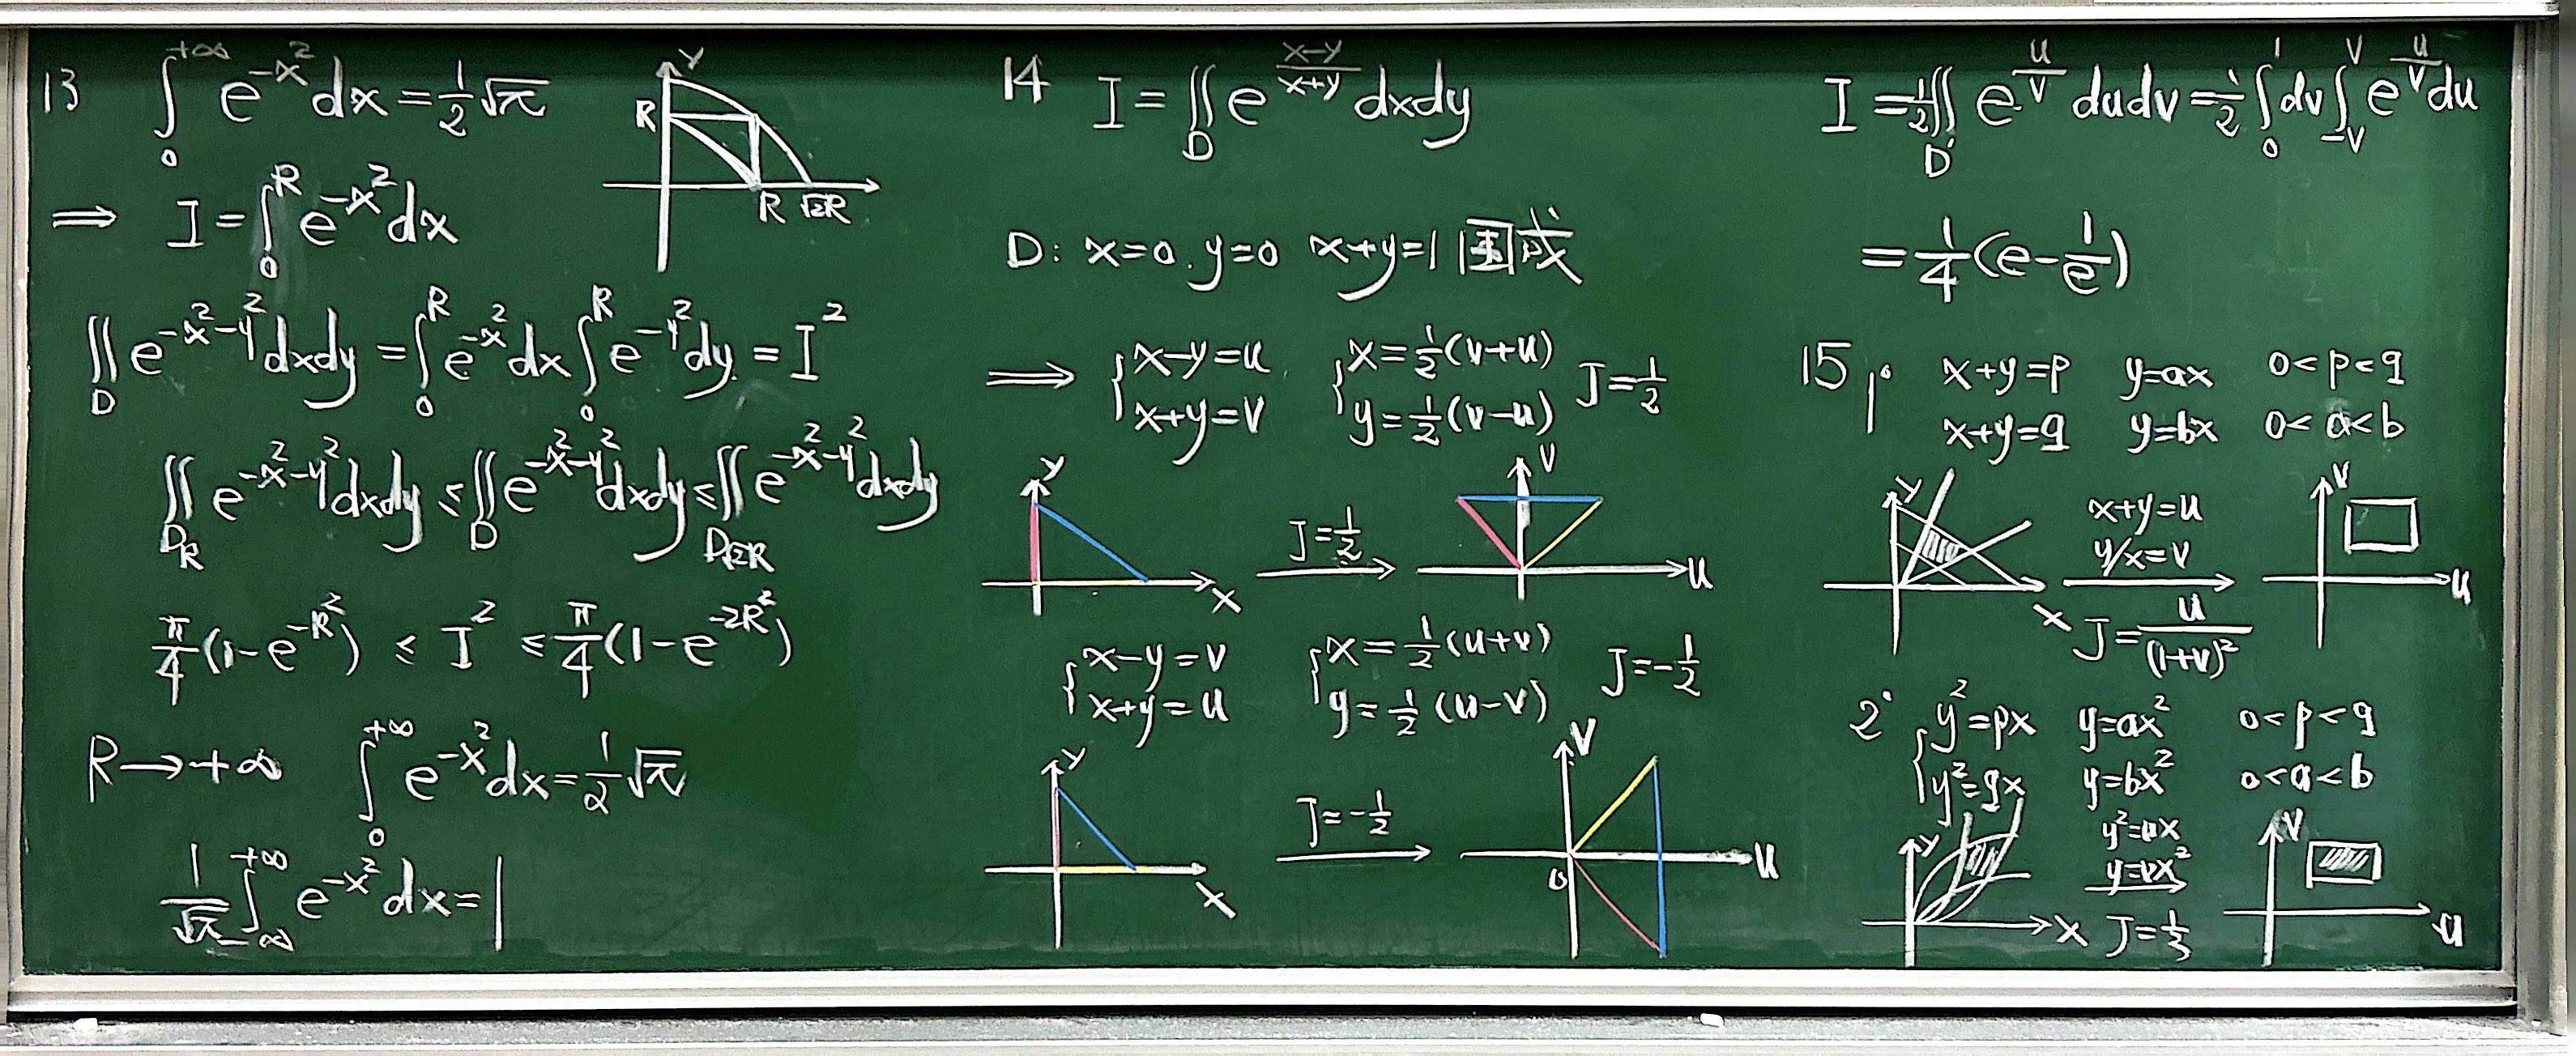 13 ∫₀^{+∞} e^{-x²}dx = 1/2 √π
y
R
R √2R
⟹ I = ∫₀^R e^{-x²}dx
∬_D e^{-x²-y²}dxdy = ∫₀^R e^{-x²}dx ∫₀^R e^{-y²}dy = I²
∬_{D_R} e^{-x²-y²}dxdy ≤ ∬_D e^{-x²-y²}dxdy ≤ ∬_{D_{√2R}} e^{-x²-y²}dxdy
π/4 (1-e^{-R²}) ≤ I² ≤ π/4 (1-e^{-2R²})
R → +∞ ∫₀^{+∞} e^{-x²}dx = 1/2 √π
1/√π ∫_{-∞}^{+∞} e^{-x²}dx = 1
14 I = ∬_D e^{(x-y)/(x+y)} dxdy
D: x=0. y=0 x+y=1 围成
⟹ { x-y=u { x=1/2(v+u) J=1/2
x+y=v y=1/2(v-u)
y x J=1/2 v u
{ x-y=v { x=1/2(u+v) J=-1/2
x+y=u y=1/2(u-v)
y x J=-1/2 v u 0
I = 1/2 ∬_{D'} e^{u/v} dudv = 1/2 ∫₀^1 dv ∫_{-v}^{v} e^{u/v}du
= 1/4 (e - 1/e)
15 1° x+y=p y=ax 0<p<q
x+y=q y=bx 0<a<b
y x
x+y=u
y/x=v
J = u/(1+v)²
v u
2° { y²=px y=ax² 0<p<q
y²=qx y=bx² 0<a<b
y x
y²=ux
y=vx²
J=1/3
v u